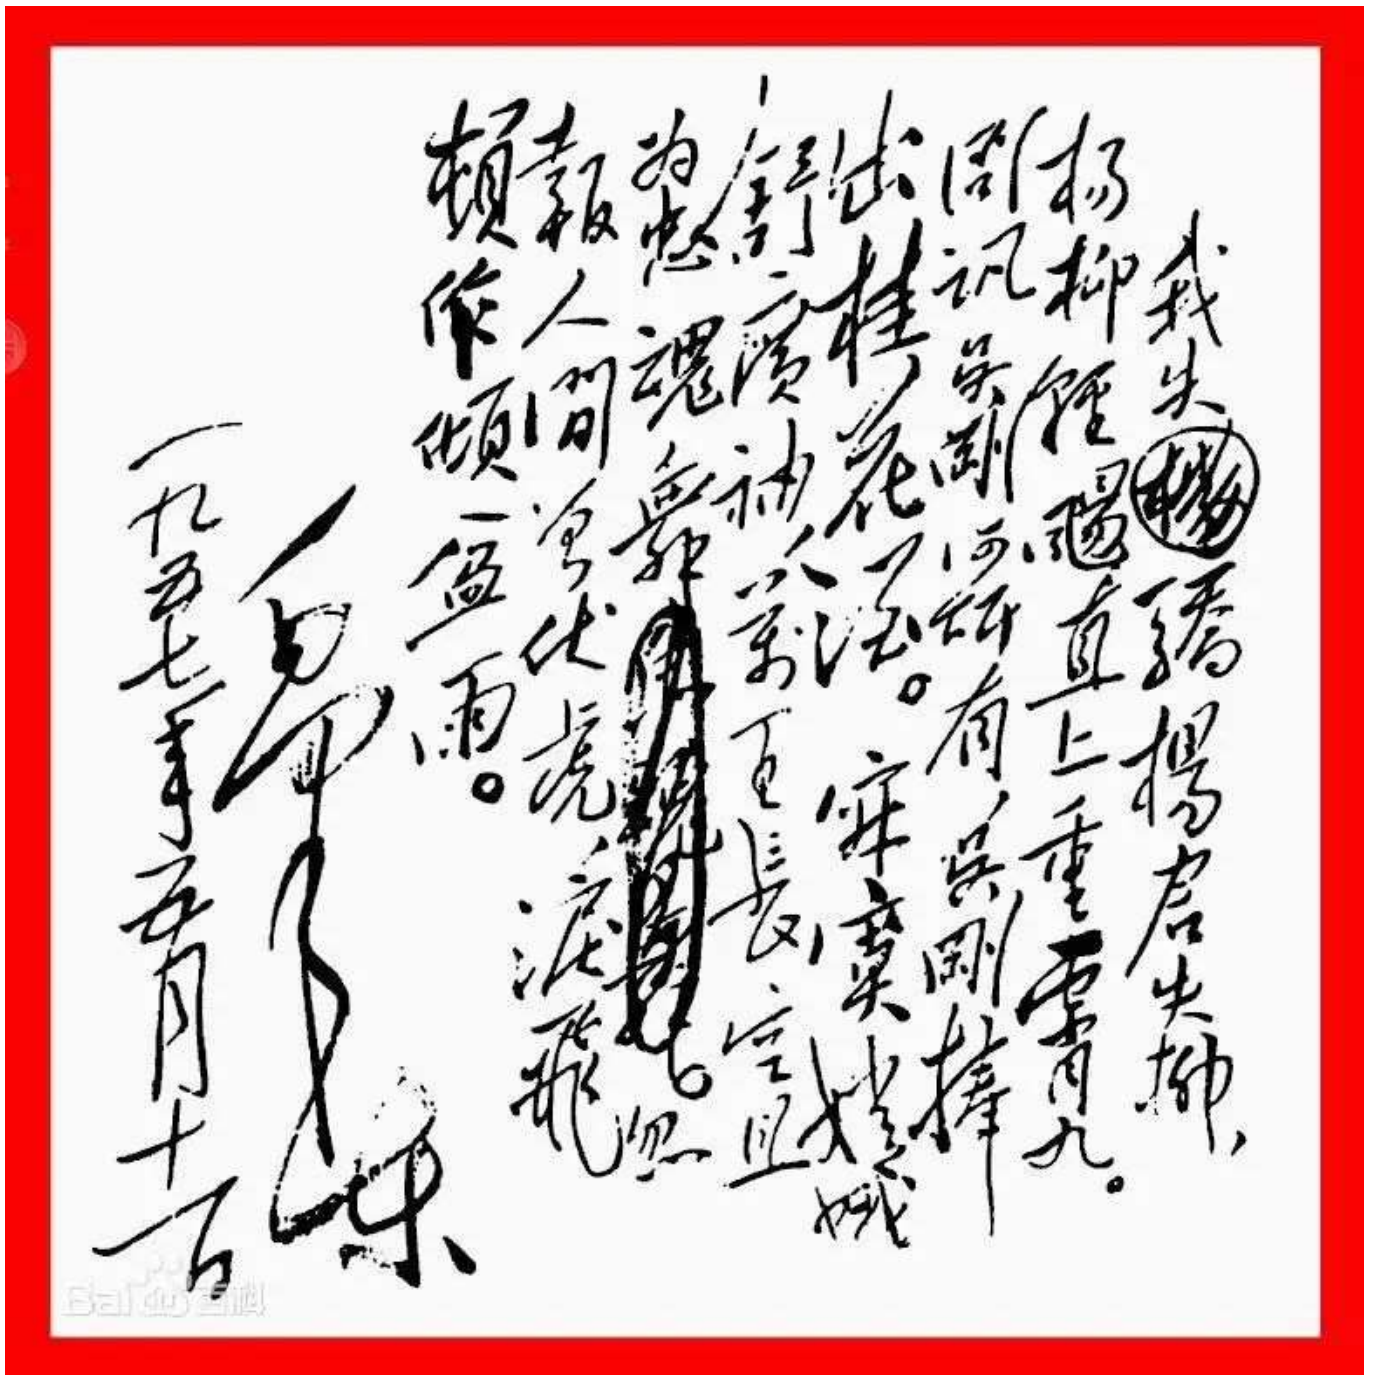 我失驕楊君失柳、
杨柳輕颺直上重霄九。
問訊吳剛何所有、吳剛捧
出桂花酒。寂寞嫦娥
舒廣袖、萬里長空且
为忠魂舞。忽
報人間曾伏虎、淚飛
頓作傾盆雨。
毛泽东
一九五七年五月十一日
Bai 百科